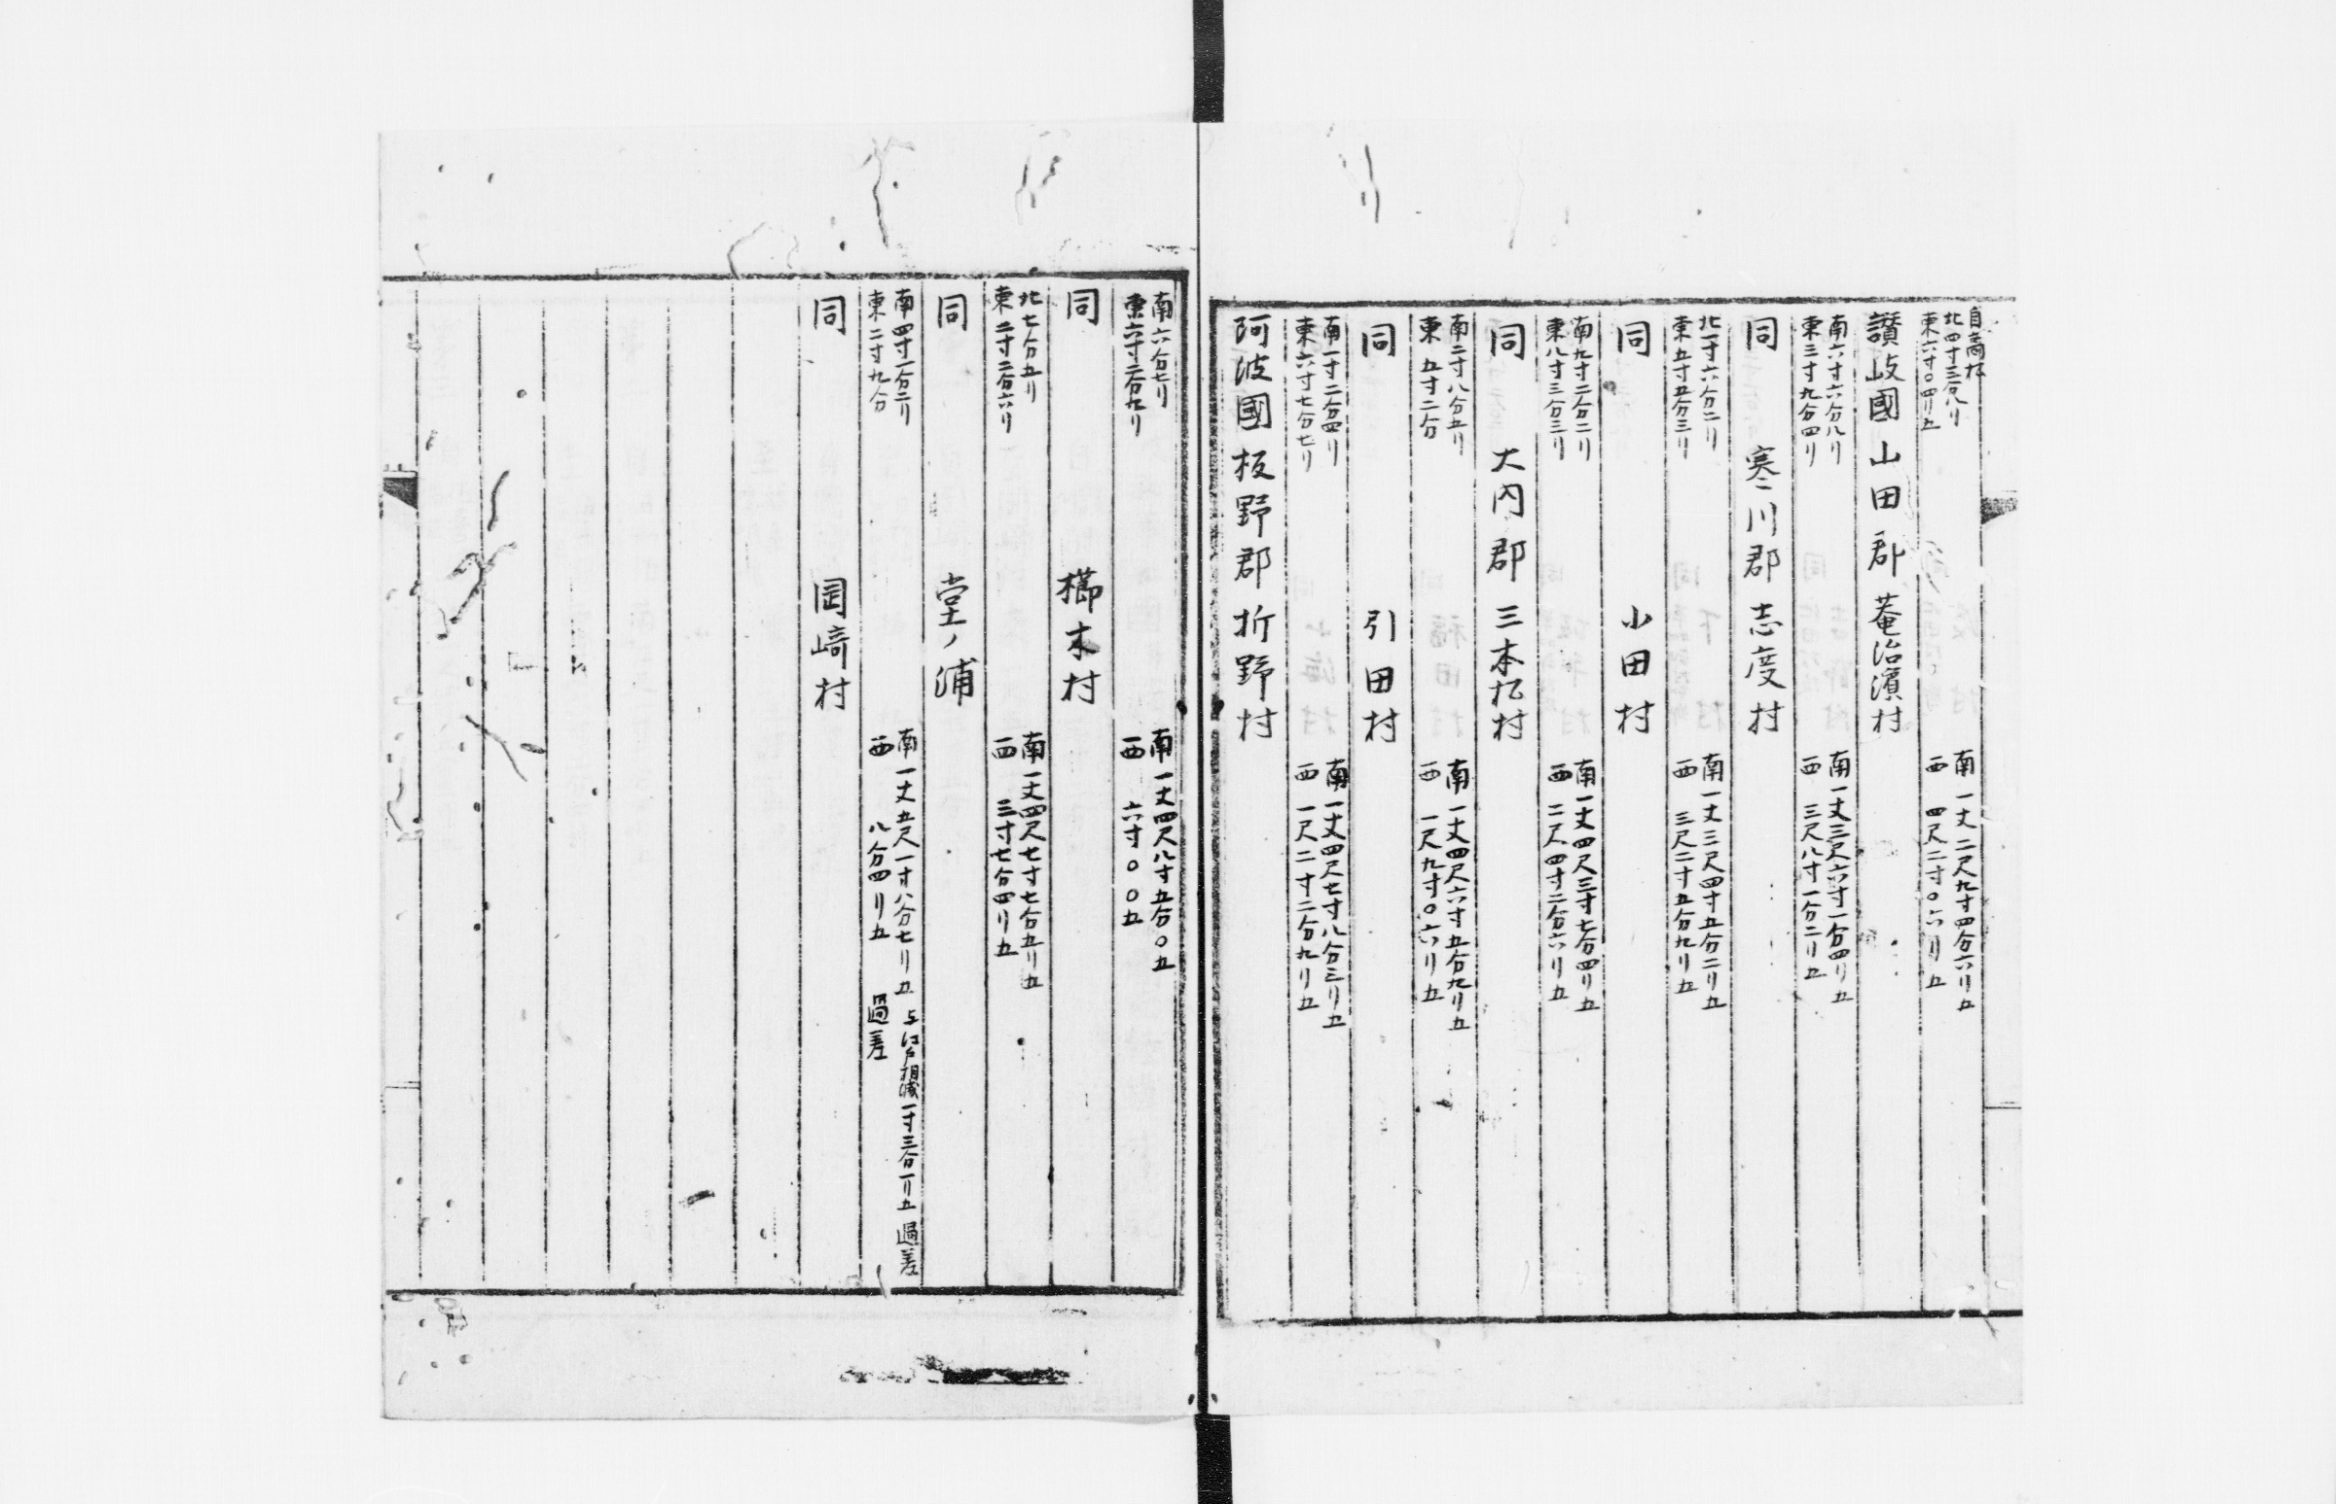 自高松
北四寸三分八リ　南一丈二尺九寸四分六リ五
東六寸〇四リ五　西　四尺二寸〇六リ五
讃岐國山田郡菴治濱村
南六寸六分八リ　南一丈三尺六寸一分四リ五
東三寸九分四リ　西　三尺八寸一分二リ五
同　寒川郡志度村
北一寸六分二リ　南一丈三尺四寸五分二リ五
東五寸五分三リ　西　三尺二寸五分九リ五
同　小田村
南九寸二分二リ　南一丈四尺三寸七分四リ五
東八寸三分三リ　西　二尺四寸二分六リ五
同　大内郡三本松村
南二寸八分五リ　南一丈四尺六寸五分九リ五
東五寸二分　西　一尺九寸〇六リ五
同　引田村
南一寸二分四リ　南一丈四尺七寸八分三リ五
東六寸七分七リ　西　一尺二寸二分九リ五
阿波國板野郡折野村
南六分七リ　南一丈四尺八寸五分〇五
東六寸二分九リ　西　六寸〇〇五
同　櫛木村
北七分五リ　南一丈四尺七寸七分五リ五
東二寸二分六リ　西　三寸七分四リ五
同　堂ノ浦
南四寸一分二リ　南一丈五尺一寸八分七リ五　与江戸相減一寸三分一リ五過差
東二寸九分　西　八分四リ五　過差
同　岡﨑村